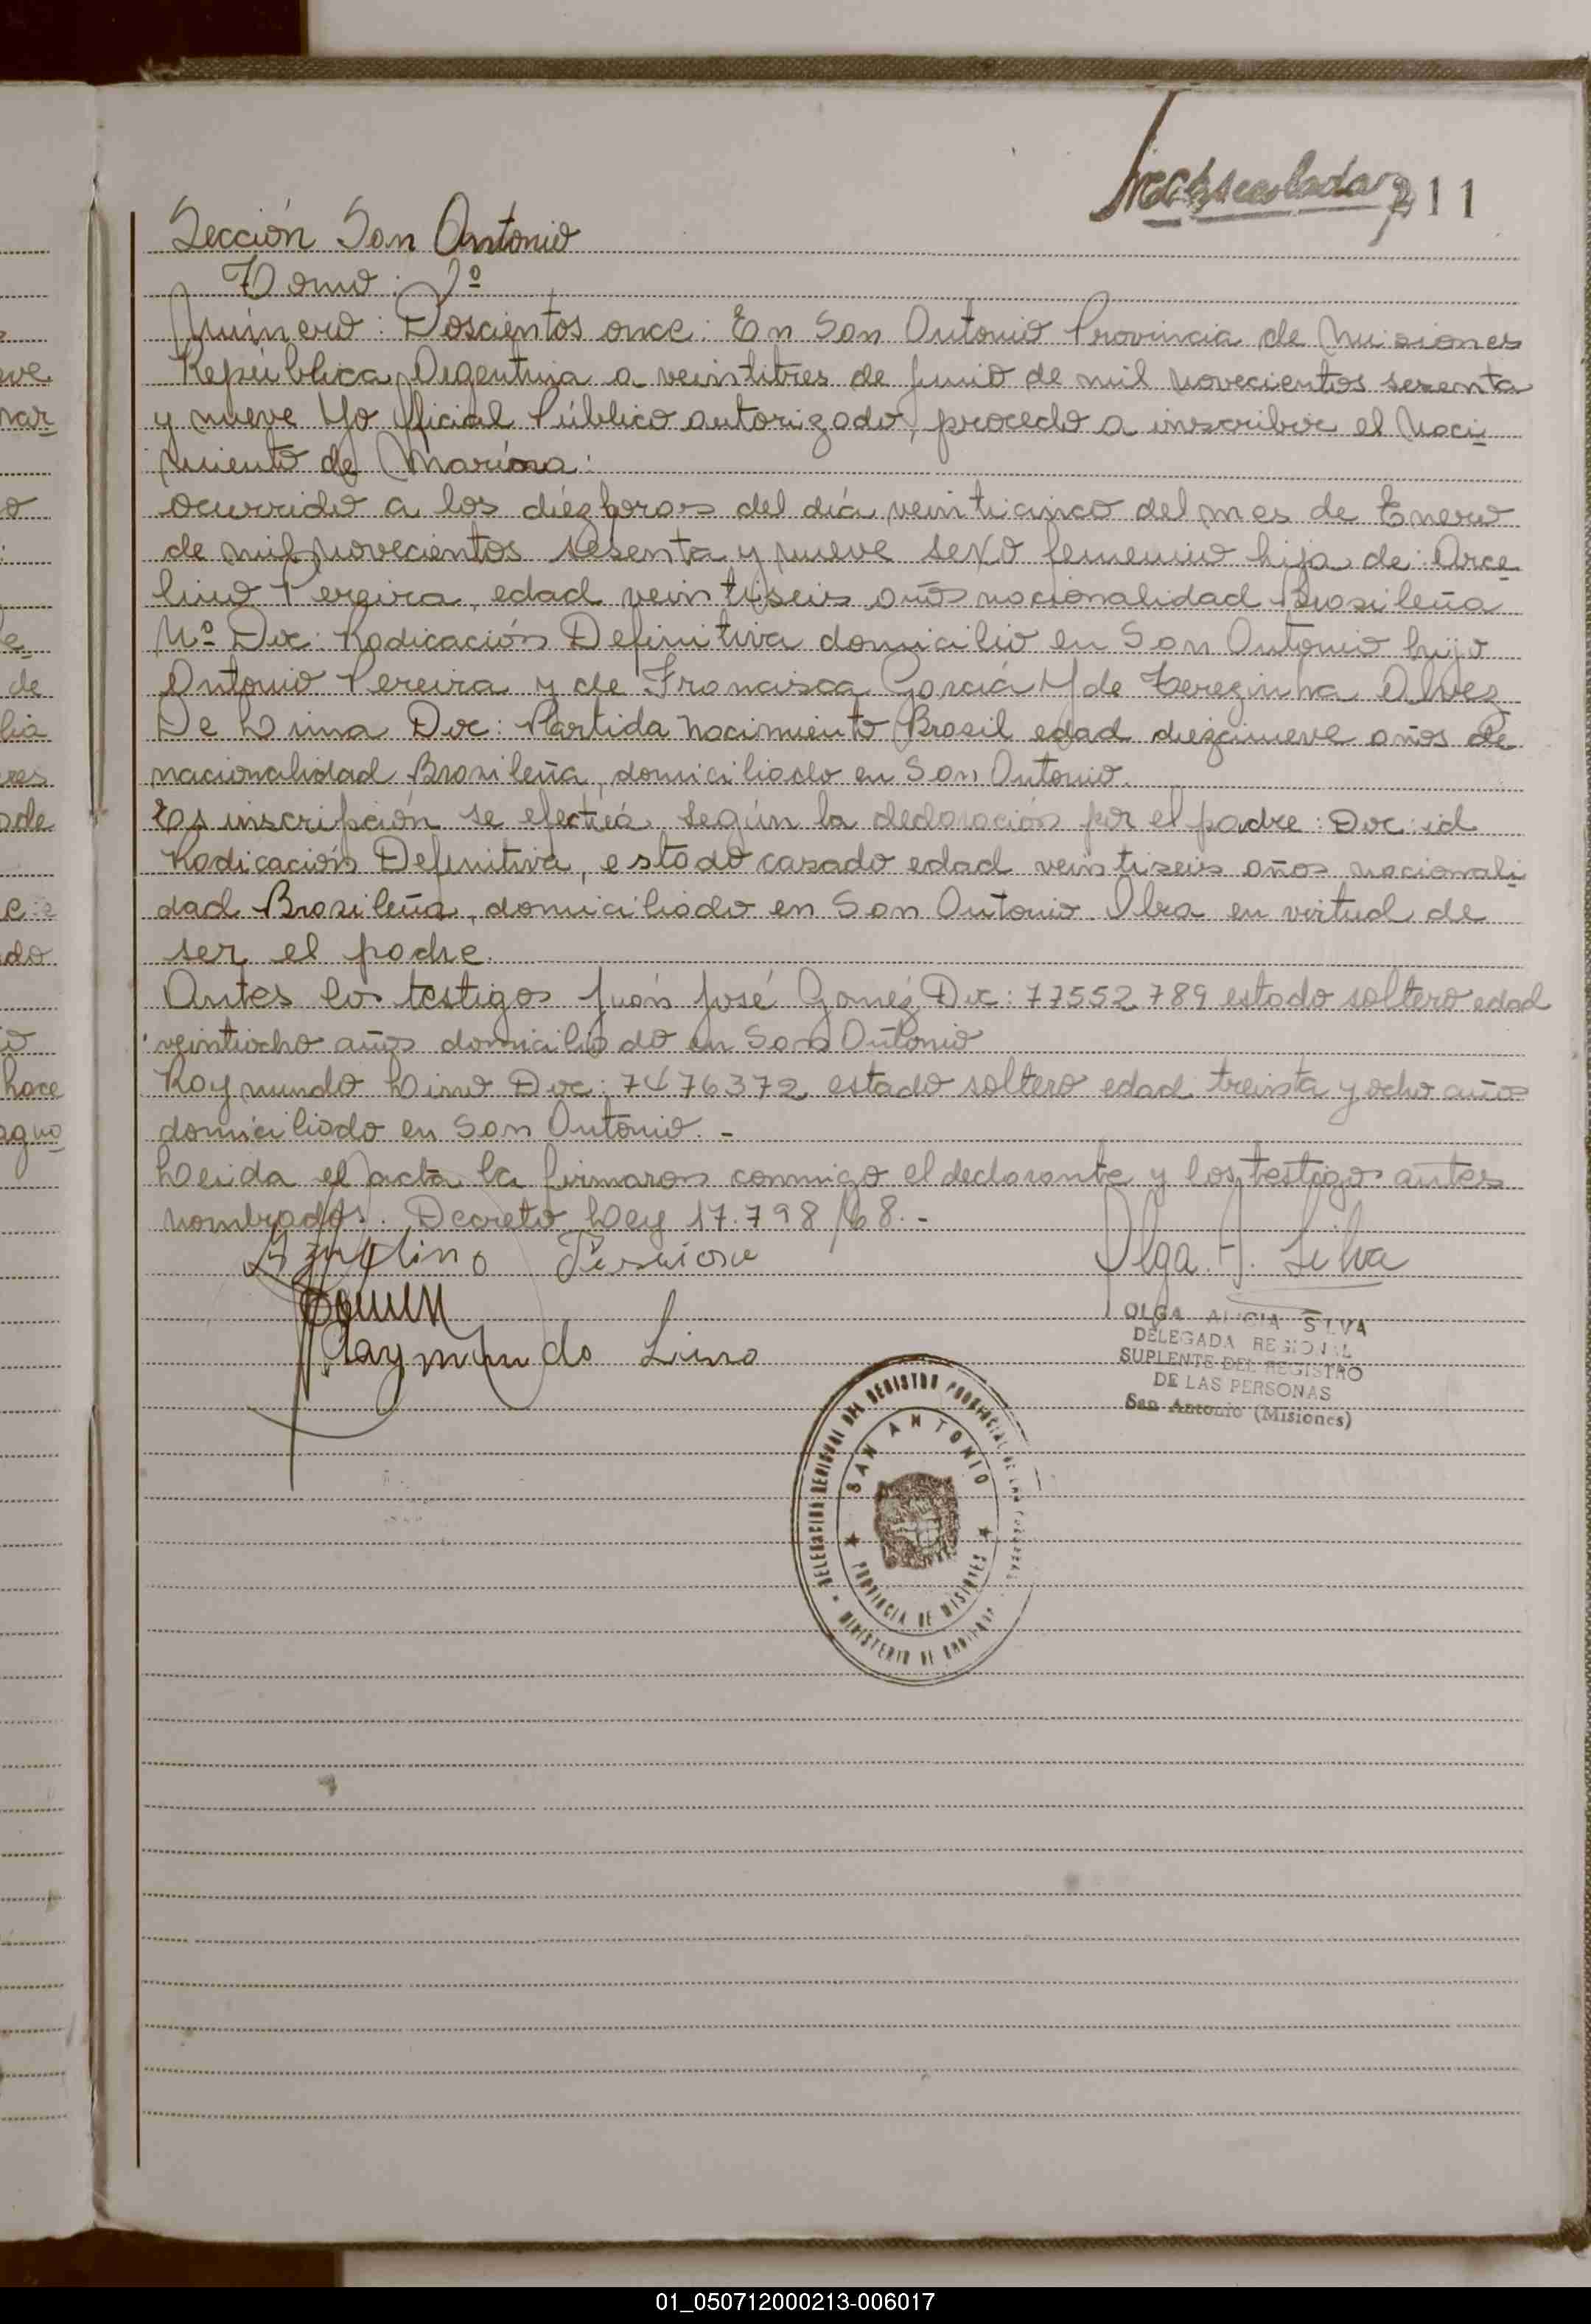 211
Sección San Antonio
Tomo: 1º
Número: Doscientos once: En San Antonio Provincia de Misiones
República Argentina a veintitres de junio de mil novecientos sesenta
y nueve Yo Oficial Público autorizado, procedo a inscribir el Naci
miento de Marina:
ocurrido a los diéz horas del día veinticinco del mes de Enero
de mil novecientos sesenta y nueve sexo femenino hija de: Arce
lino Pereira, edad veintiseis años nacionalidad Brasileña
Nº Doc: Radicación Definitiva domicilio en San Antonio hijo
Antonio Pereira y de Francisca Garciá Y de Terezinha Alvez
De Lima Doc: Partida Nacimiento Brasil edad diezinueve años de
nacionalidad Brasileña, domiciliado en San Antonio.
Es inscripción se efectúa según la declaración por el padre: Doc: id
Radicación Definitiva, estado casado edad veintiseis años nacionali
dad Brasileña, domiciliado en San Antonio Obra en virtud de
ser el padre.
Antes los testigos Juán José Goméz Doc: 77552789 estado soltero edad
veintiocho años domiciliado en San Antonio
Raymundo Lino Doc: 7476372 estado soltero edad treinta y ocho años
domiciliado en San Antonio. -
Leida el acta la firmaron conmigo el declarante y los testigos antes
nombrados. Decreto Ley 17.798/68. -
Olga. A. Silva
Raymundo Lino
OLGA ALICIA SILVA
DELEGADA REGIONAL
SUPLENTE DEL REGISTRO
DE LAS PERSONAS
San Antonio (Misiones)
DELEGACION REGIONAL DEL REGISTRO PROVINCIAL DE LAS PERSONAS
SAN ANTONIO
PROVINCIA DE MISIONES
MINISTERIO DE
01_050712000213-006017